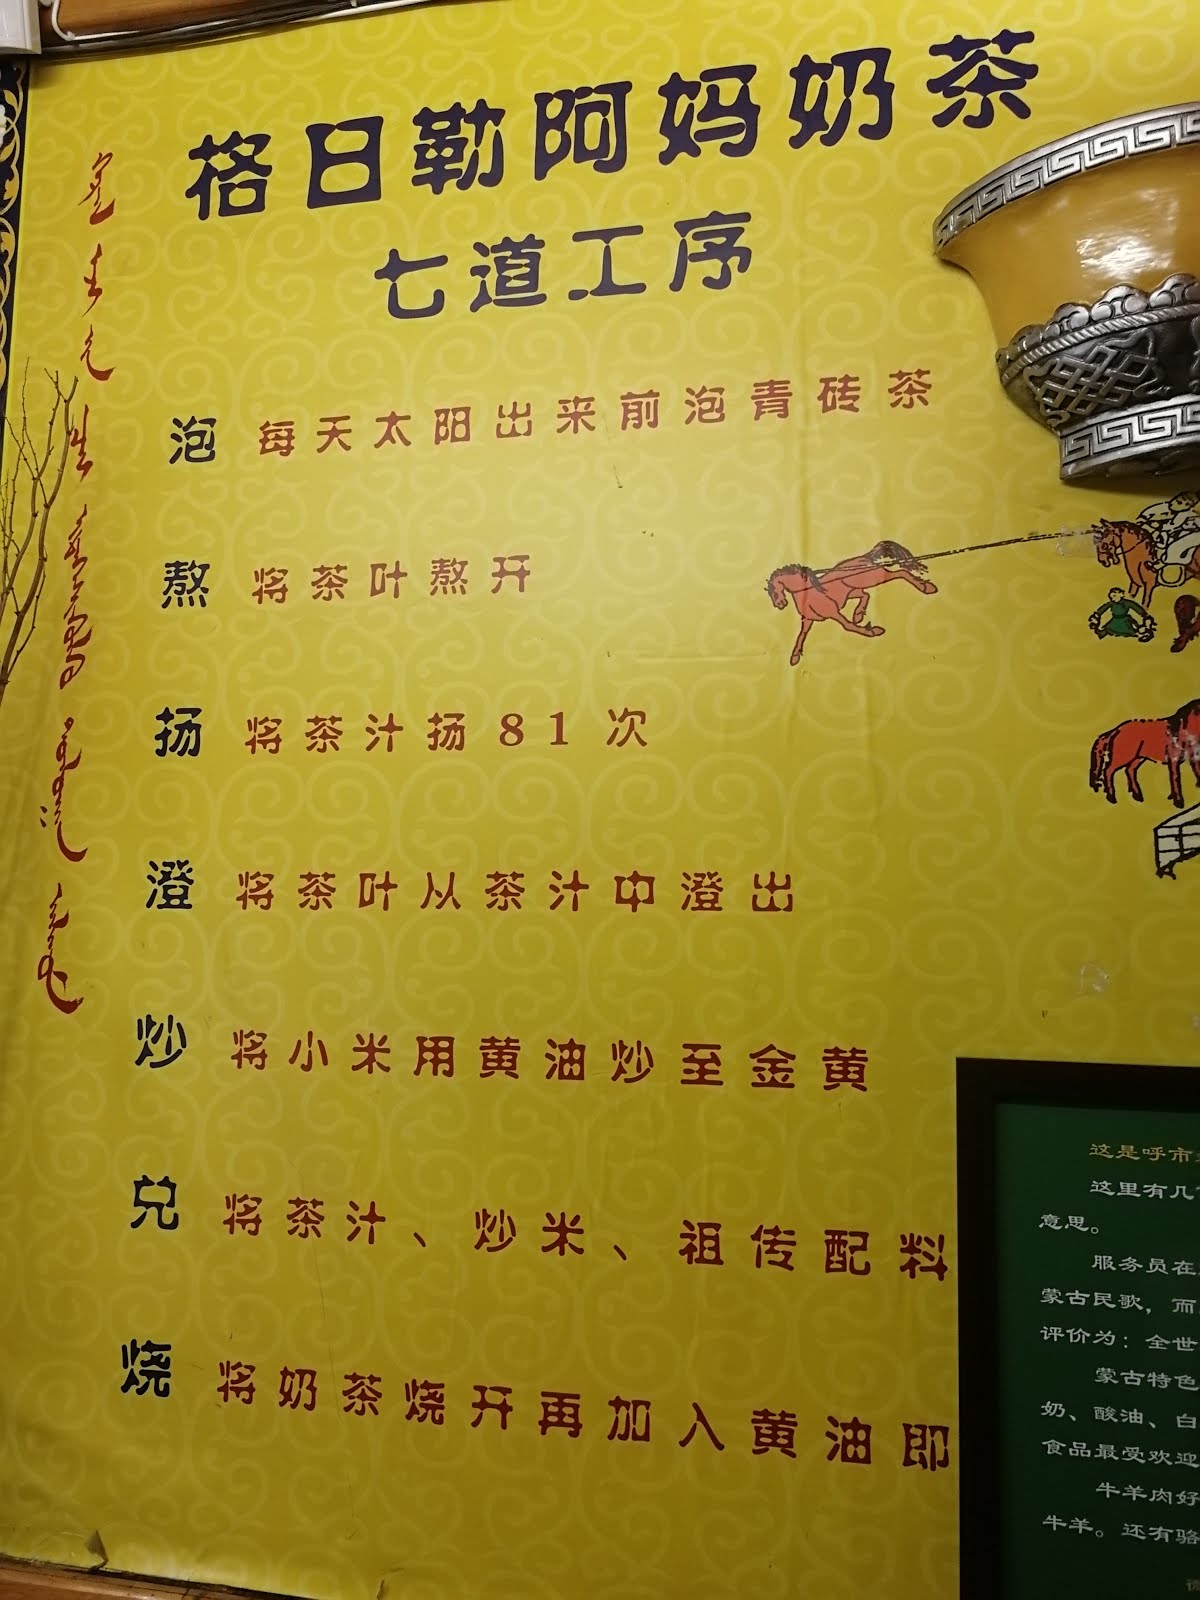 格日勒阿妈奶茶
七道工序
泡 每天太阳出来前泡青砖茶
熬 将茶叶熬开
扬 将茶汁扬81次
澄 将茶叶从茶汁中澄出
炒 将小米用黄油炒至金黄
兑 将茶汁、炒米、祖传配料
烧 将奶茶烧开再加入黄油即
这是呼市
这里有几
意思。
服务员在
蒙古民歌，而
评价为：全世
蒙古特色
奶、酸油、白
食品最受欢迎
牛羊肉好
牛羊。还有骆